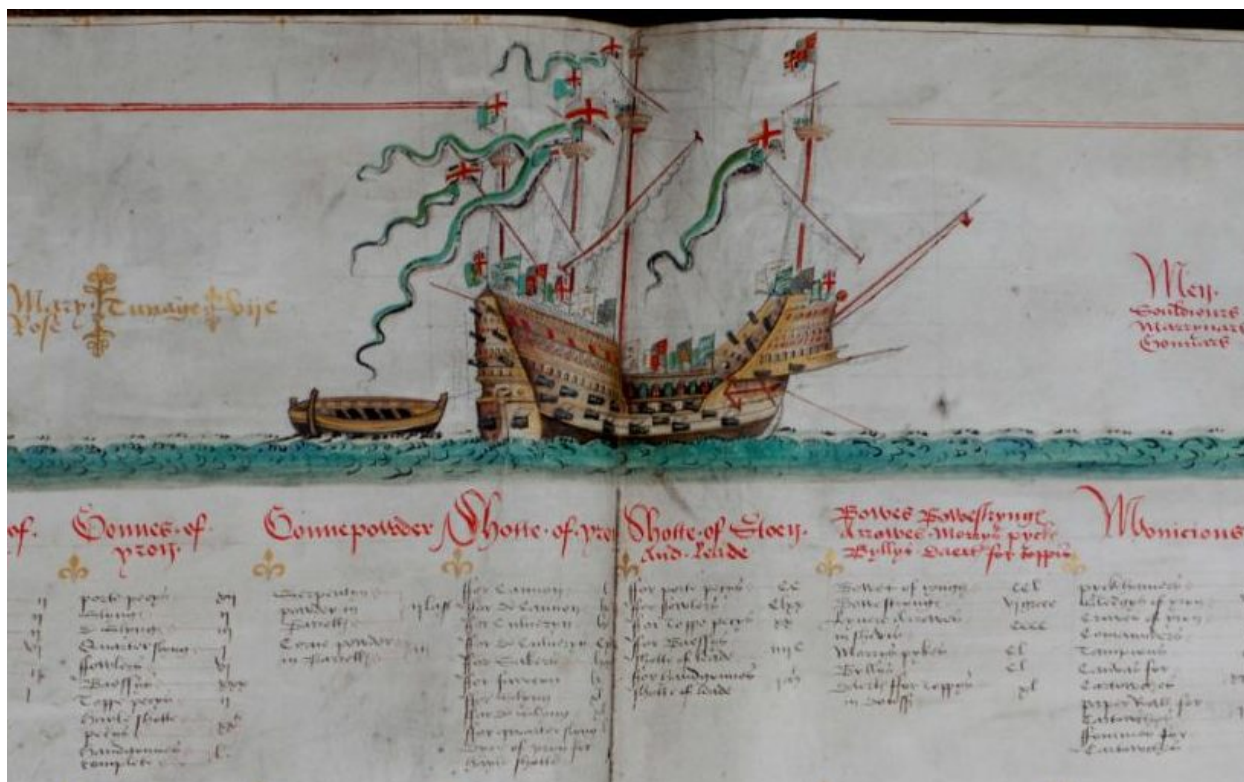 Mary
Rose
Tunage vijc
Men.
Souldiours
Marrynars
Gonnars
of.
Gonnes. of.
yron.
ij
ij
vj
j
porte pecys xij
Slyngs ij
d Slyngs iij
Quarter slyng j
ffowlers vj
Baessys xxx
Toppe pecys ij
hayle shotte
pecys xx
handgonnes l
complete
Gonnepowder
Serpentyn
powder in ij last
Barrells
Corne powder iij
in Barrells
Shotte. of. yron
ffor Cannon
ffor de Cannon
ffor Culveryn
ffor de Culveryn
ffor Sakers
ffor fawcon
ffor slyng
ffor de slyng
ffor quarter slyng
Dyce of yron for
hayle shotte
Shotte. of Stoen.
And. leade
ffor porte pecys cc
ffor fowlers clxx
ffor Toppe pecys xx
ffor Baessys
shotte of leade iiijc
ffor handgonnes
shotte of leade jm
Bowes Bowestrynges
Arrowes. Morrys pyckes
Byllys Daerts for toppys
Bowes of yough ccl
Bowestryngs vj groce
Lyvere Arrowes cccc
in shevis
Morrys pykes cl
Byllys cl
Daerts ffor toppys xl
in Doussen
Monicions
pyckhamers
Sledges of yron
Crowes of yron
Comaunders
Tampions
Canvas for
Cartowches
paper Ryall for
Cartowches
fformes for
Cartowches